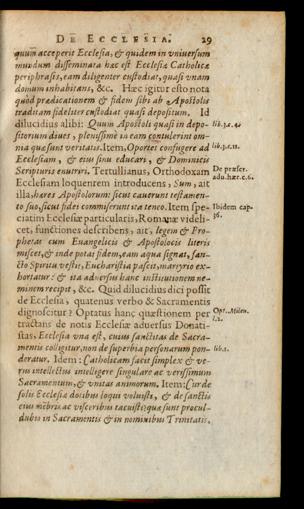 DE ECCLESIA. 29
quum acceperit Ecclesia, & quidem in vniuersum
mundum disseminata hæc est Ecclesiæ Catholicæ
periphrasis, eam diligenter custodiat, quasi vnam
domum inhabitans, &c. Hæc igitur esto nota
quod prædicationem & fidem sibi ab Apostolis
traditam fideliter custodiat quasi depositum. Id
dilucidius alibi: Quum Apostoli quasi in depo- lib.3.c.4.
sitorium diues, plenissimè in eam contulerint om-
nia quæ sunt veritatis. Item, Oportet confugere ad lib.3.c.11.
Ecclesiam, & eius sinu educari, & Dominicis
Scripturis enutriri. Tertullianus, Orthodoxam De præscr.
Ecclesiam loquentem introducens, Sum, ait adu.hær.c.6.
illa, hæres Apostolorum: sicut cauerunt testamen-
to suo, sicut fidei commiserunt ita teneo. Item spe- Ibidem cap.
ciatim Ecclesiæ particularis, Romanæ videli- 36.
cet, functiones describens, ait, legem & Pro-
phetas cum Euangelicis & Apostolocis literis
miscet, & inde potat fidem, eam aqua signat, san-
cto Spiritu vestit, Eucharistia pascit, martyrio ex-
hortatur: & ita aduersus hanc institutionem ne-
minem recipit, &c. Quid dilucidius dici possit
de Ecclesia, quatenus verbo & Sacramentis
dignoscitur? Optatus hanc quæstionem per Opt. Milen.
tractans de notis Ecclesiæ aduersus Donati- l.2.
stas, Ecclesia vna est, cuius sanctitas de Sacra-
mentis colligitur, non de superbia personarum pon- lib.1.
deratur. Idem: Catholicam facit simplex & ve-
rus intellectus intelligere singulare ac verissimum
Sacramentum, & vnitas animorum. Item: Cur de
solis Ecclesiæ dotibus loqui voluisti, & de sanctis
eius mẽbris ac visceribus tacuisti: quæ sunt procul-
dubio in Sacramentis & in nominibus Trinitatis.